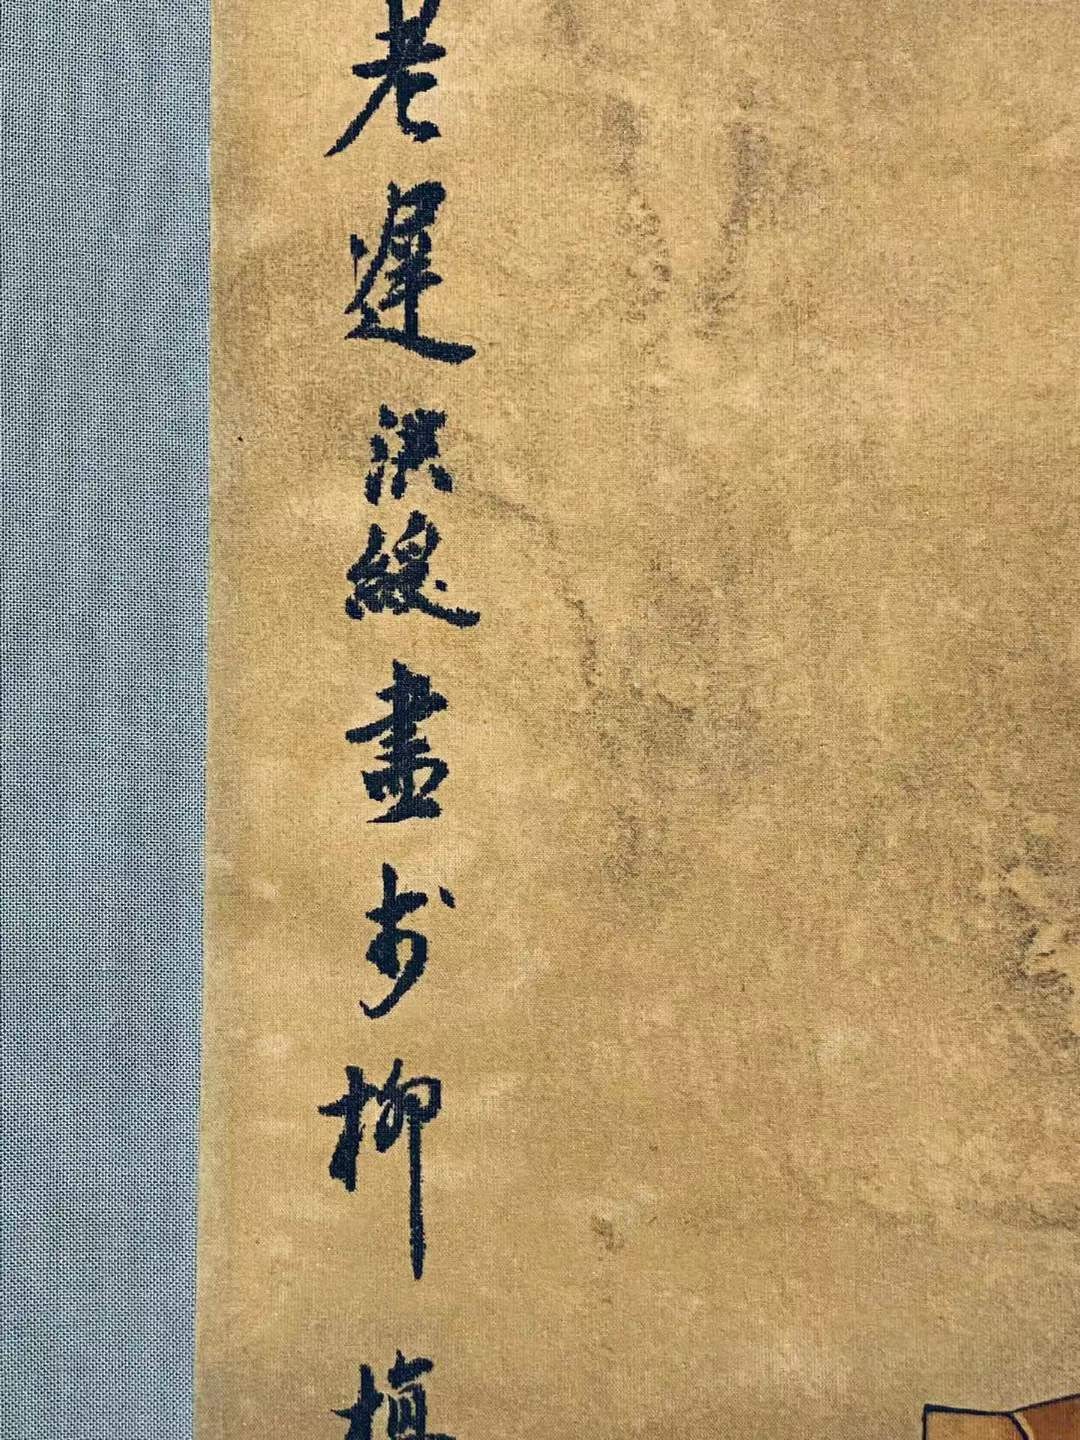 老遲洪綬畫於柳